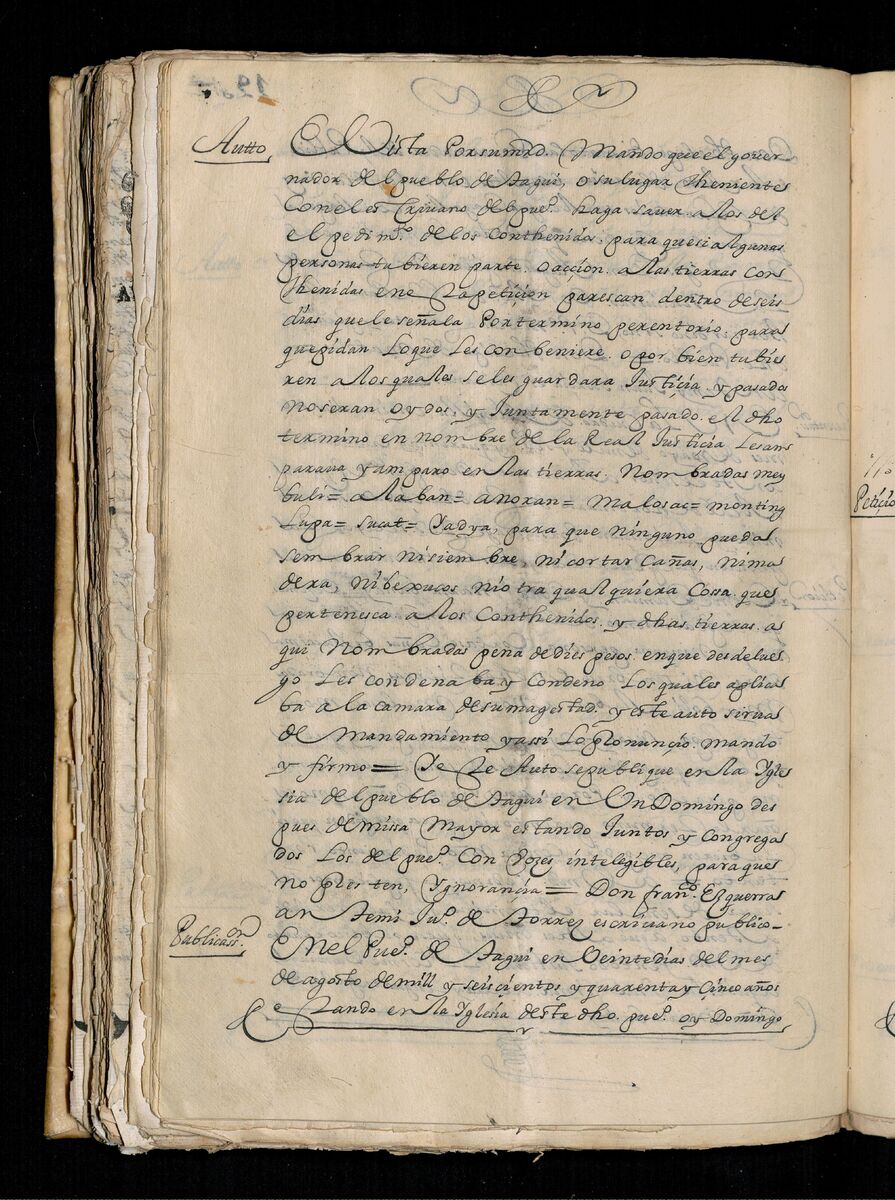 Autto
E Vista Por su mrd. Mando que el gover
nador del pueblo de Tagui, o su lugar Thenientes
Con el escrivano del pueº. haga saver a los del
el pedimtº. de los Conthenidos. para que si algunas
personas tubieren parte. o acçion. a las tierras con
thenidas en esta petiçion parescan dentro de seis
dias que le señala Por termino perentorio. para
que pidan Lo que Les conbeniere. o por bien tubie
ren a los quales se les guardara Justiçia. y pasados
no seran oydos, y Juntamente pasado. el dho
termino en nombre de la Real Justiçia Les am
parava y amparo en las tierras. Nombradas mey
buli= alaban= anoran= malosac= monting
Lupa= sucat= Yadya, para que ninguno pueda
sembrar ni siembre, ni cortar Cañas, ni ma
dera, ni bexucos ni otra qualquiera Cossa que
pertenesca a los Conthenidos. y dhas tierras. a
qui Nombradas pena de dies pesos. en que desde lue
go Les condenaba y Condeno Los quales aplica
ba a la camara de su magestad. y este auto sirva
de Mandamiento y assi Lo Pronunçio. mando
y firmo= Ye este Auto se publique en la Ygle
sia del pueblo de Tagui en Un Domingo des
pues de missa Mayor estando Juntos y Congrega
dos Los del pueº. Con Vozes intelegibles, para que
no presten, Ygnorançia= Don franº. Ezguerra
ante mi Juº. de Torres escrivano publico_
Publicassn.
En el Pueº. de Tagui en Veinte dias del mes
de agosto de mill y seiscientos y quarenta y Çinco años
estando en la Yglesia deste dho. pueº. oy Domingo
Petiçio